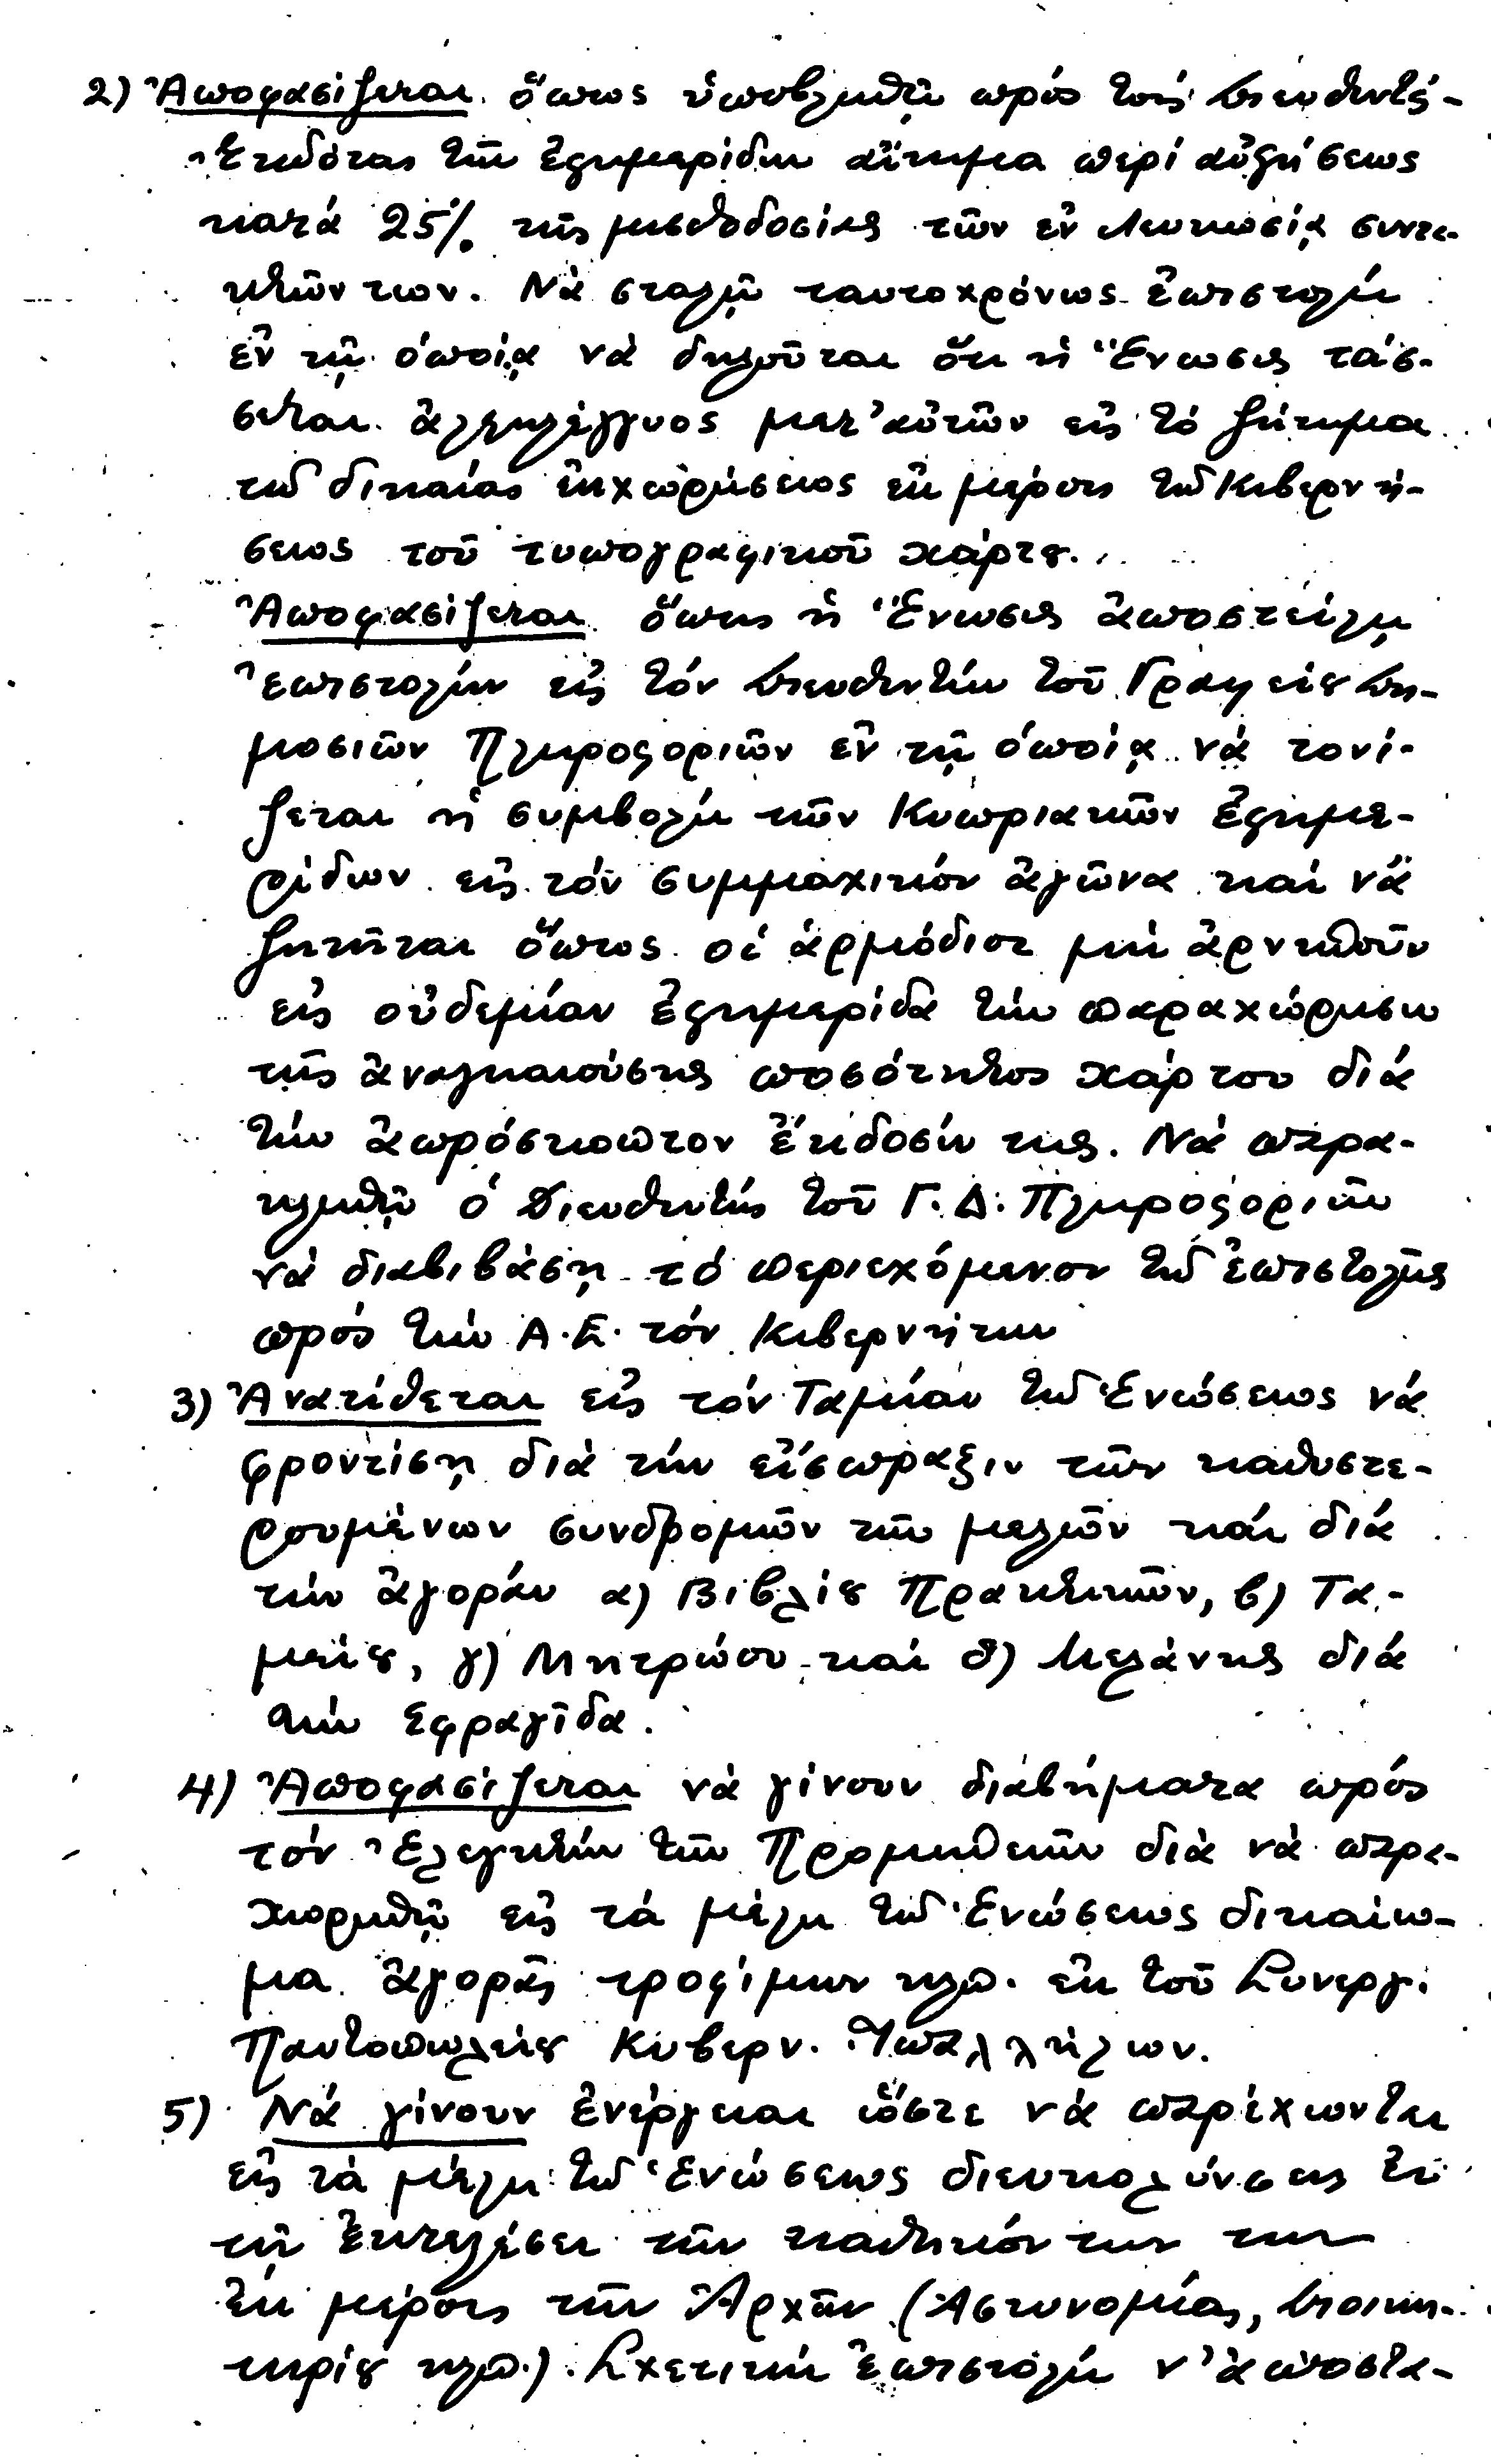 2) Ἀποφασίζεται ὅπως ὑποβληθῇ πρός τούς Διευθυντάς-
Ἐκδότας τῶν ἐφημερίδων αἴτημα περί αὐξήσεως
κατά 25% τῆς μισθοδοσίας τῶν ἐν Λευκωσίᾳ συντα-
κτῶν των. Νά σταλῇ ταυτοχρόνως ἐπιστολή
ἐν τῇ ὁποίᾳ νά δηλοῦται ὅτι ἡ Ἕνωσις τάσ-
σεται ἀλληλέγγυος μετ' αὐτῶν εἰς τό ζήτημα
τῆς δικαίας ἐκχωρήσεως ἐκ μέρους τῆς Κυβερνή-
σεως τοῦ τυπογραφικοῦ χάρτου.
Ἀποφασίζεται ὅπως ἡ Ἕνωσις ἀποστείλῃ
ἐπιστολήν εἰς τόν Διευθυντήν τοῦ Γραφείου Δη-
μοσιῶν Πληροφοριῶν ἐν τῇ ὁποίᾳ νά τονί-
ζεται ἡ συμβολή τῶν Κυπριακῶν ἐφημε-
ρίδων εἰς τόν συμμαχικόν ἀγῶνα καί νά
ζητῆται ὅπως οἱ ἁρμόδιοι μή ἀρνηθοῦν
εἰς οὐδεμίαν ἐφημερίδα τήν παραχώρησιν
τῆς ἀναγκαιούσης ποσότητος χάρτου διά
τήν ἀπρόσκοπτον ἔκδοσίν της. Νά παρα-
κληθῇ ὁ Διευθυντής τοῦ Γ. Δ. Πληροφοριῶν
νά διαβιβάσῃ τό περιεχόμενον τῆς ἐπιστολῆς
πρός τήν Α.Ε. τόν Κυβερνήτην
3) Ἀνατίθεται εἰς τόν Ταμίαν τῆς Ἑνώσεως νά
φροντίσῃ διά τήν εἴσπραξιν τῶν καθυστε-
ρουμένων συνδρομῶν τῶν μελῶν καί διά
τήν ἀγοράν α) Βιβλίου Πρακτικῶν, β) Τα-
μείου, γ) Μητρώου καί δ) Μελάνης διά
τήν Σφραγῖδα.
4) Ἀποφασίζεται νά γίνουν διαβήματα πρός
τόν Ἐλεγκτήν τῶν Προμηθειῶν διά νά παρα-
χωρηθῇ εἰς τά μέλη τῆς Ἑνώσεως δικαίω-
μα ἀγορᾶς τροφίμων κλπ. ἐκ τοῦ Συνεργ.
Παντοπωλείου Κυβερν. Ὑπαλλήλων.
5) Νά γίνουν ἐνέργειαι ὥστε νά παρέχωνται
εἰς τά μέλη τῆς Ἑνώσεως διευκολύνσεις ἐν
τῇ ἐκτελέσει τῶν καθηκόντων των
ἐκ μέρους τῶν Ἀρχῶν (Ἀστυνομίας, Διοικη-
τηρίου κλπ.). Σχετική ἐπιστολή ν' ἀποστα-